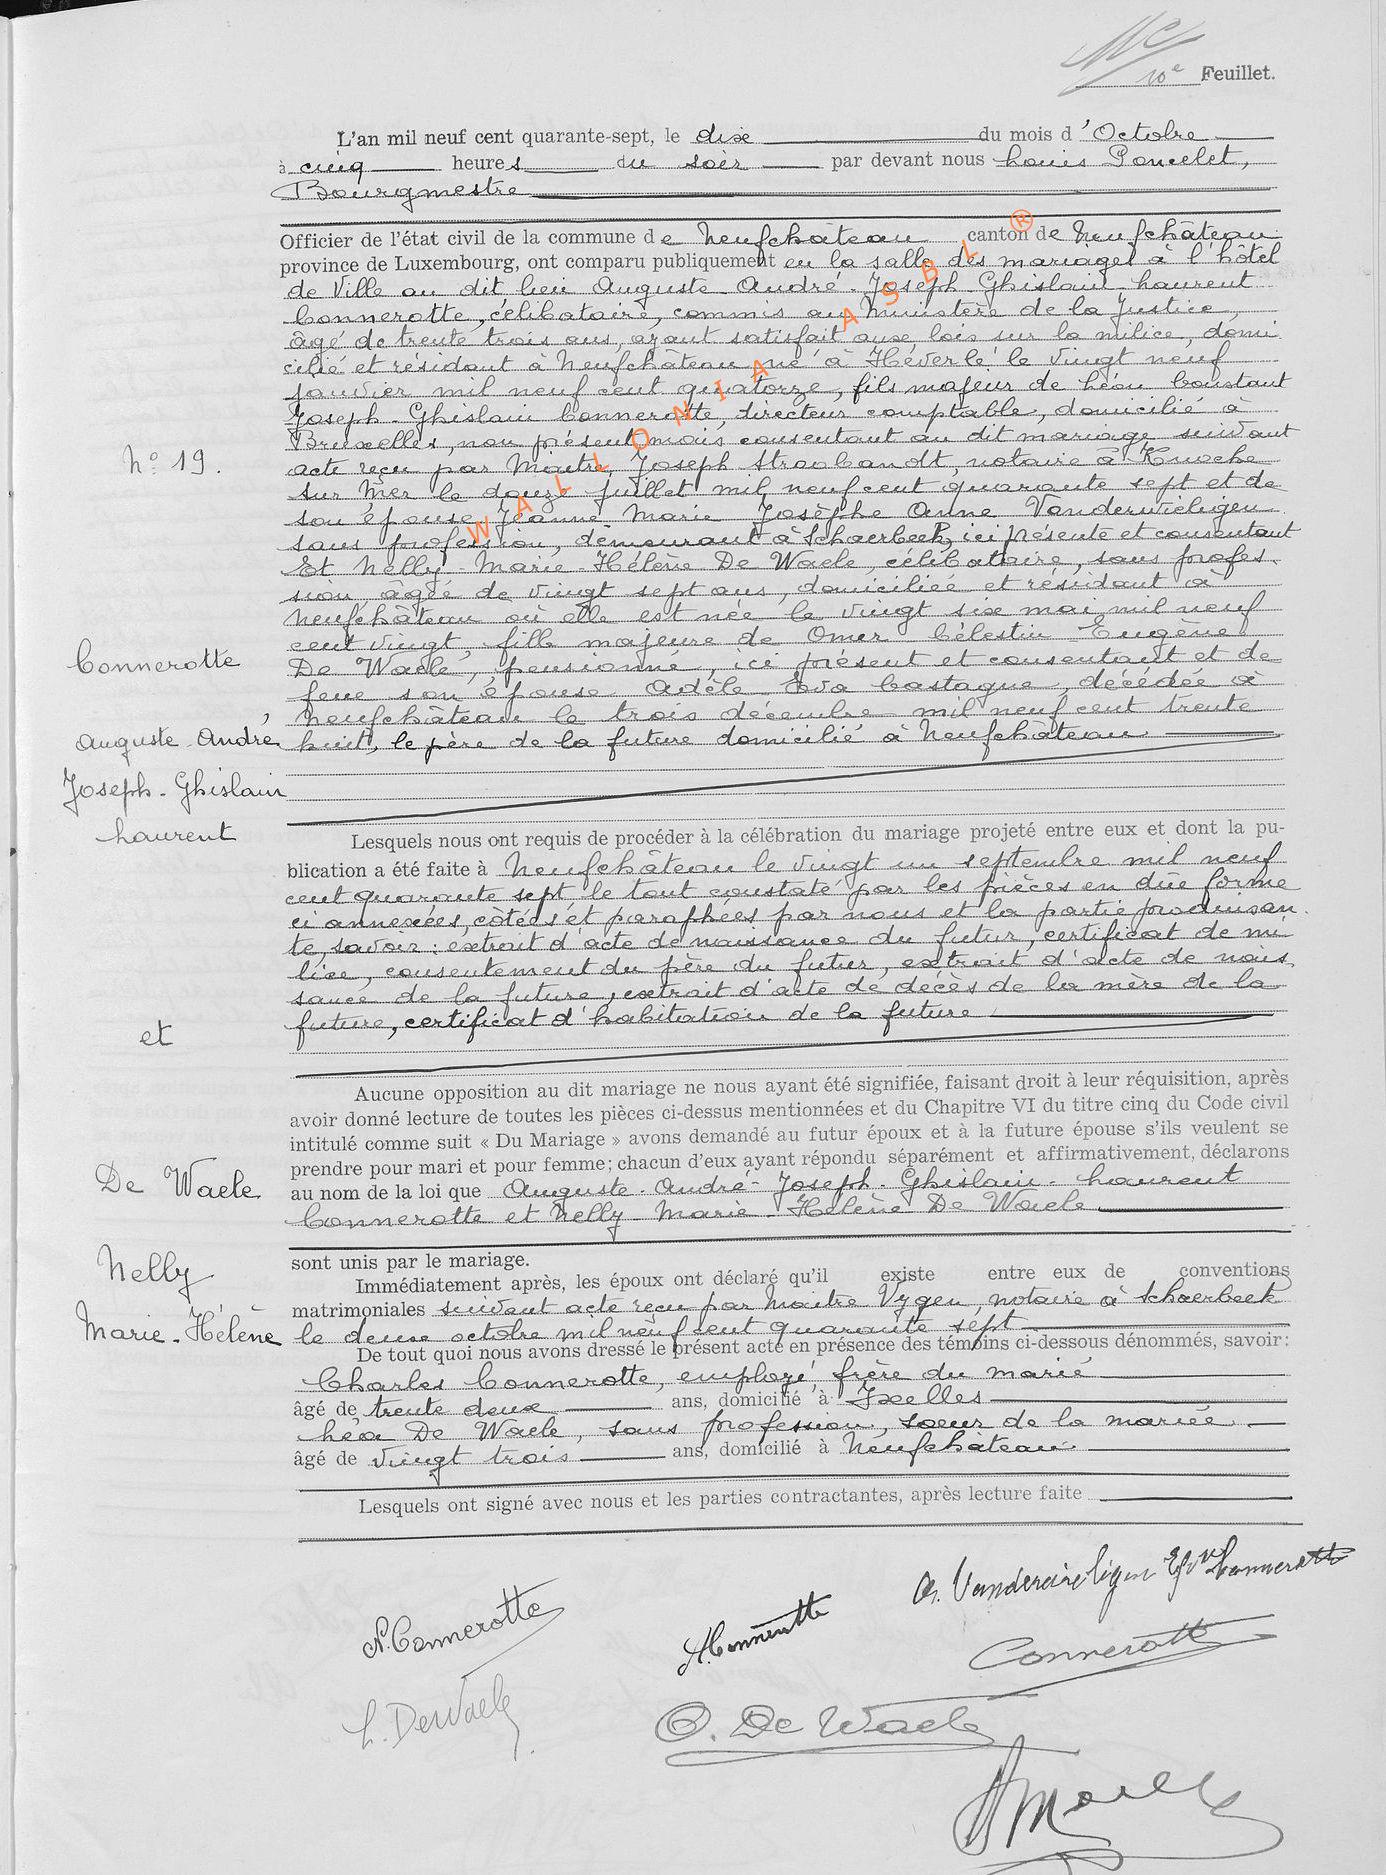 10e Feuillet.
L'an mil neuf cent quarante-sept, le dix du mois d'Octobre
à cinq heures du soir par devant nous Louis Poncelet,
Bourgmestre
Officier de l'état civil de la commune de Neufchâteau canton de Neufchâteau
province de Luxembourg, ont comparu publiquement en la salle des mariages à l'hôtel
de Ville au dit lieu Auguste-André-Joseph-Ghislain-Laurent
Connerotte, célibataire, commis au Ministère de la Justice,
âgé de trente trois ans, ayant satisfait aux lois sur la milice, domi
cilié et résidant à Neufchâteau né à Héverlé le vingt neuf
janvier mil neuf cent quatorze, fils majeur de Léon Constant
Joseph-Ghislain Connerotte, directeur comptable, domicilié à
Bruxelles, non présent mais consentant au dit mariage suivant
acte reçu par Maitre Joseph Stroobandt, notaire à Knocke
sur Mer le douze juillet mil neuf cent quarante sept et de
son épouse Jeanne Marie Josèphe Anne Vanderwieligen
sans profession, demeurant à Schaerbeek, ici présente et consentant
Et Nelly-Marie-Hélène De Waele, célibataire, sans profes-
sion, âgée de vingt sept ans, domiciliée et résidant à
Neufchâteau où elle est née le vingt six mai mil neuf
cent vingt, fille majeure de Omer Célestin Eugène
De Waele, pensionné, ici présent et consentant et de
feue son épouse Adèle Eva Castagne, décédée à
Neufchâteau le trois décembre mil neuf cent trente
huit, le père de la future domicilié à Neufchâteau
No 19.
Connerotte
Auguste-André
Joseph-Ghislain
Laurent
et
De Waele
Nelly
Marie-Hélène
Lesquels nous ont requis de procéder à la célébration du mariage projeté entre eux et dont la pu-
blication a été faite à Neufchâteau le vingt un septembre mil neuf
cent quarante sept le tout constaté par les pièces en dûe forme
ci annexées, côtées et paraphées par nous et la partie produisan
te, savoir: extrait d'acte de naissance du futur, certificat de mi
lice, consentement du père du futur, extrait d'acte de nais
sance de la future, extrait d'acte de décès de la mère de la
future, certificat d'habitation de la future
Aucune opposition au dit mariage ne nous ayant été signifiée, faisant droit à leur réquisition, après
avoir donné lecture de toutes les pièces ci-dessus mentionnées et du Chapitre VI du titre cinq du Code civil
intitulé comme suit « Du Mariage » avons demandé au futur époux et à la future épouse s'ils veulent se
prendre pour mari et pour femme; chacun d'eux ayant répondu séparément et affirmativement, déclarons
au nom de la loi que Auguste-André-Joseph-Ghislain-Laurent
Connerotte et Nelly-Marie-Hélène De Waele
sont unis par le mariage.
Immédiatement après, les époux ont déclaré qu'il existe entre eux de conventions
matrimoniales suivant acte reçu par Maitre Vygen, notaire à Schaerbeek
le deux octobre mil neuf cent quarante sept
De tout quoi nous avons dressé le présent acte en présence des témoins ci-dessous dénommés, savoir:
Charles Connerotte, employé, frère du marié
âgé de trente deux ans, domicilié à Ixelles
Léa De Waele, sans profession, soeur de la mariée
âgé de vingt trois ans, domicilié à Neufchâteau
Lesquels ont signé avec nous et les parties contractantes, après lecture faite
N. Connerotte
A. Connerotte
Connerotte
L. DeWaele
O. De Waele
WALLONIA ASBL ®